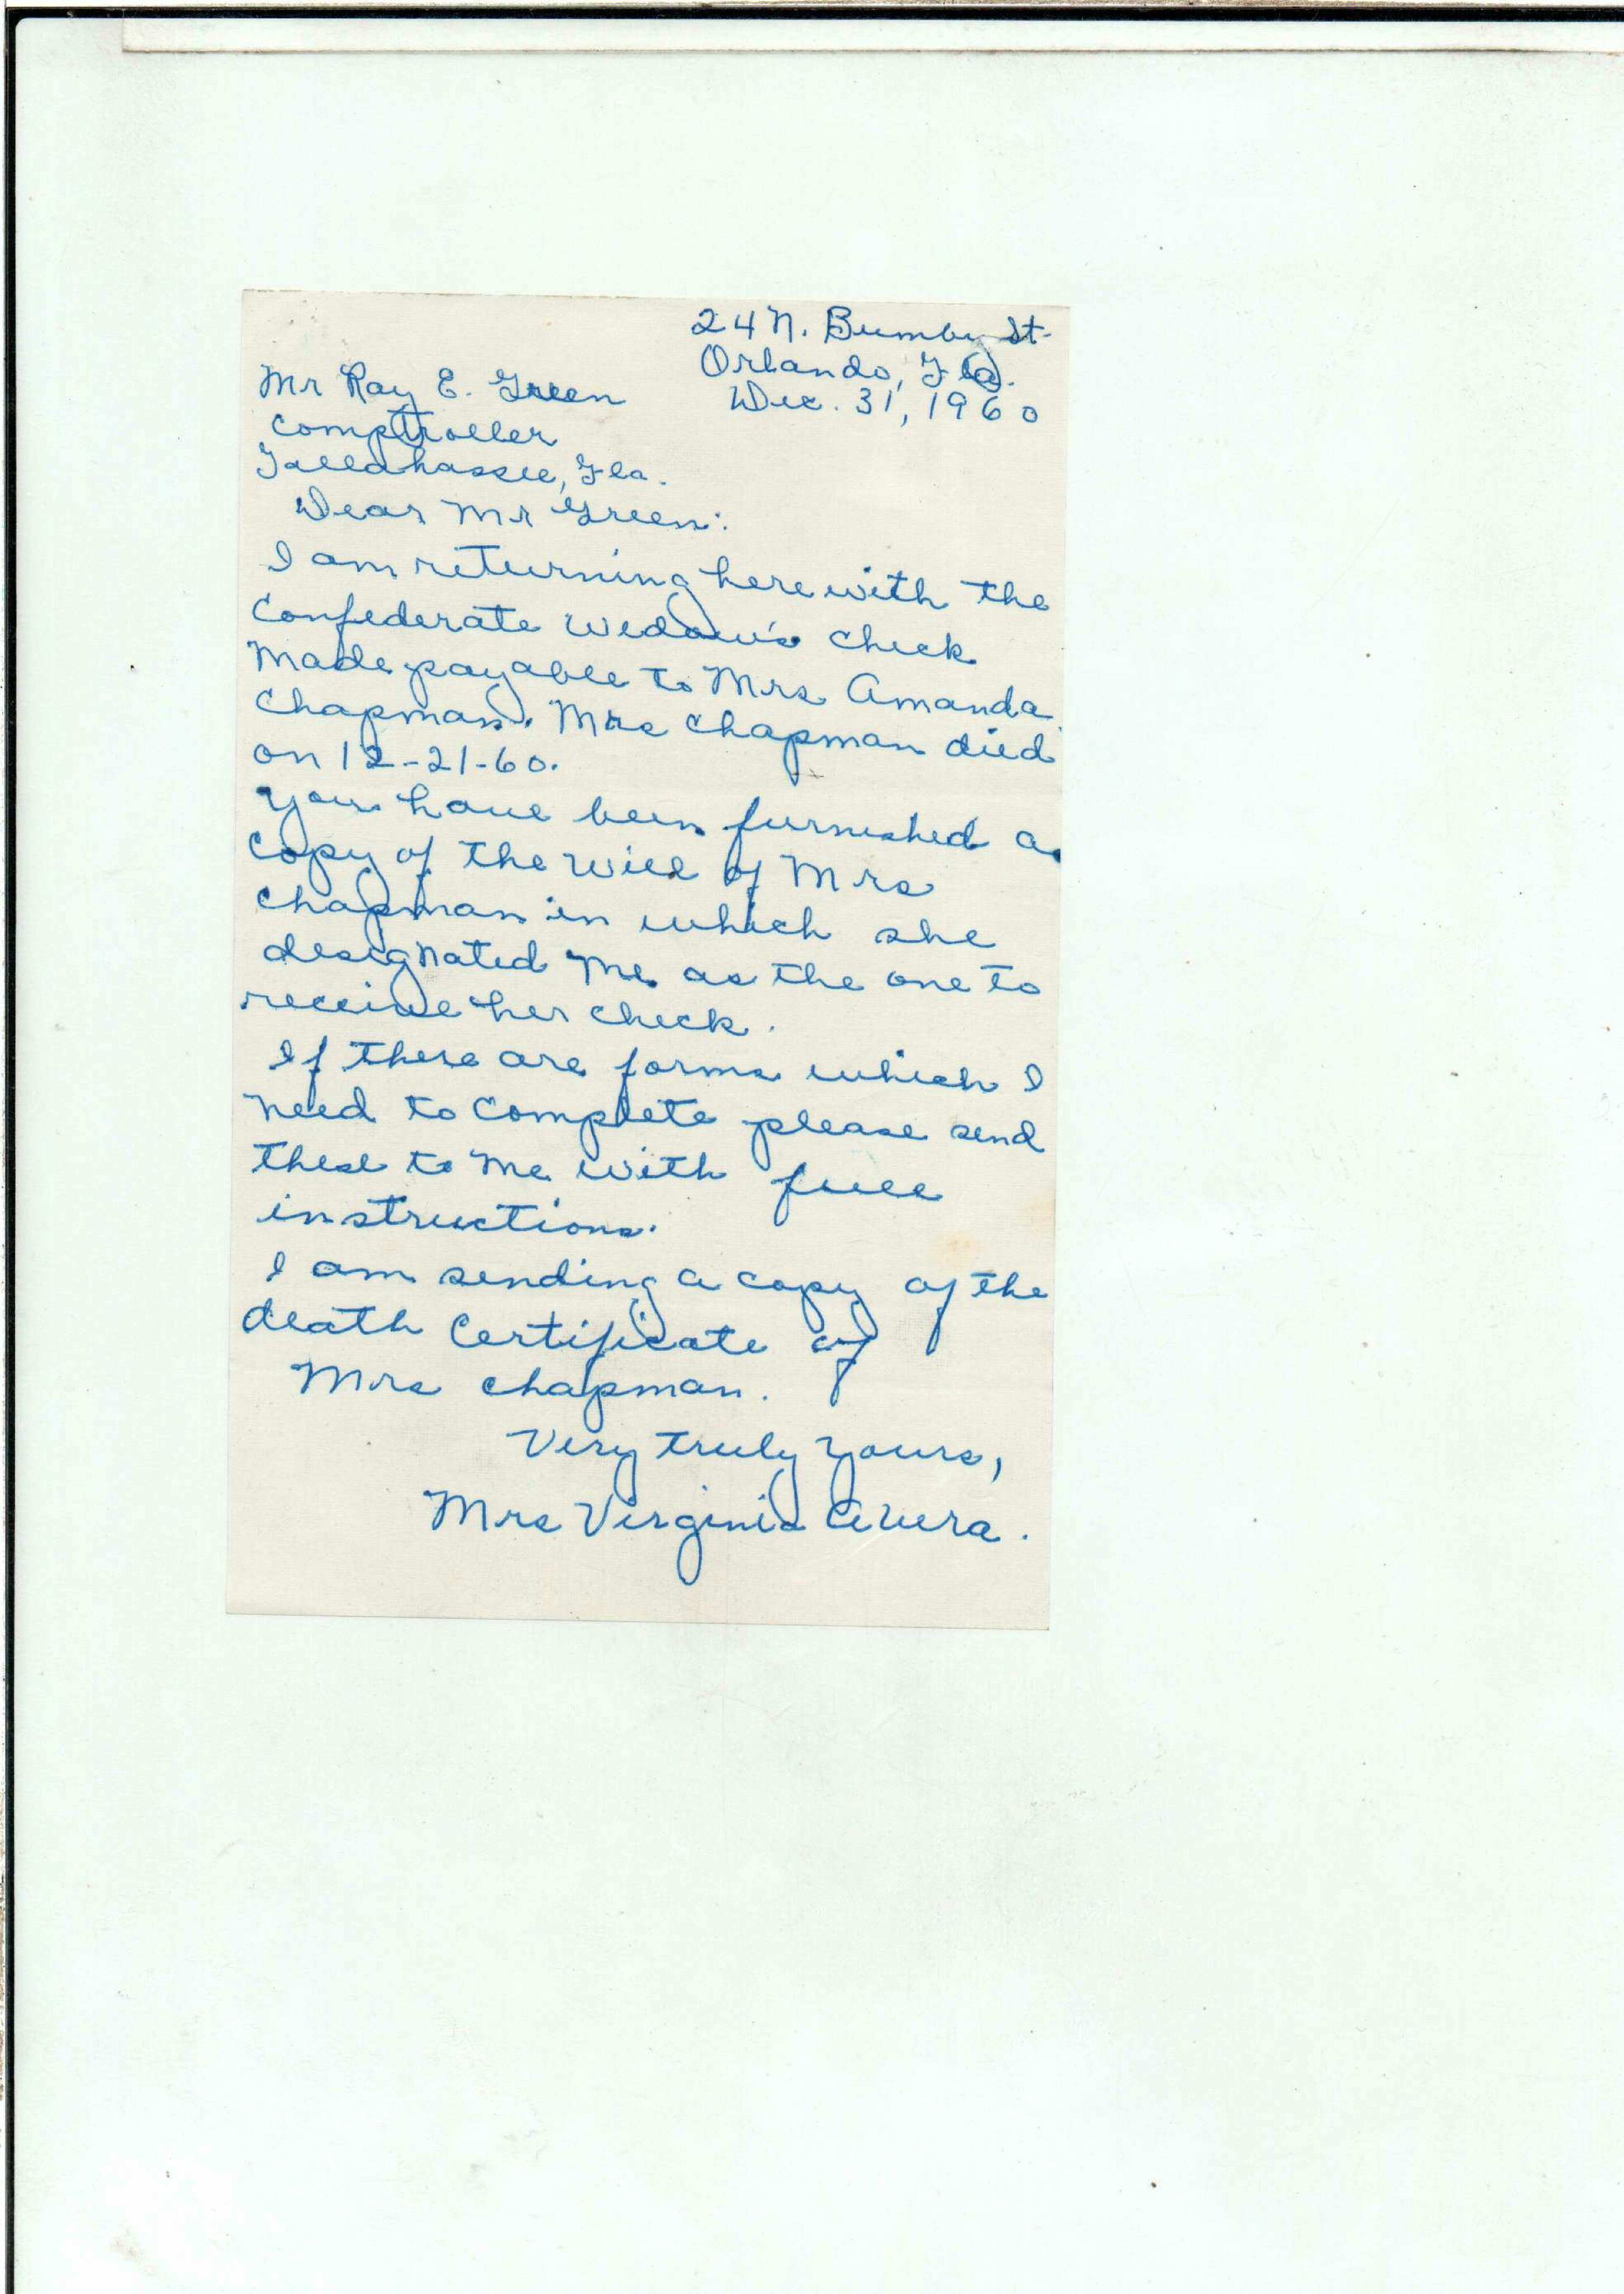 24 N. Bumby St.
Orlando, Fla.
Dec. 31, 1960
Mr Ray E. Green
Comptroller
Tallahassee, Fla.
Dear Mr Green:
I am returning herewith the
Confederate Widow's check
made payable to Mrs Amanda
Chapman. Mrs Chapman died
on 12-21-60.
You have been furnished a
copy of the will of Mrs
Chapman in which she
designated me as the one to
receive her check.
If there are forms which I
need to complete please send
these to me with full
instructions.
I am sending a copy of the
death certificate of
Mrs Chapman.
Very truly yours,
Mrs Virginia Avera.